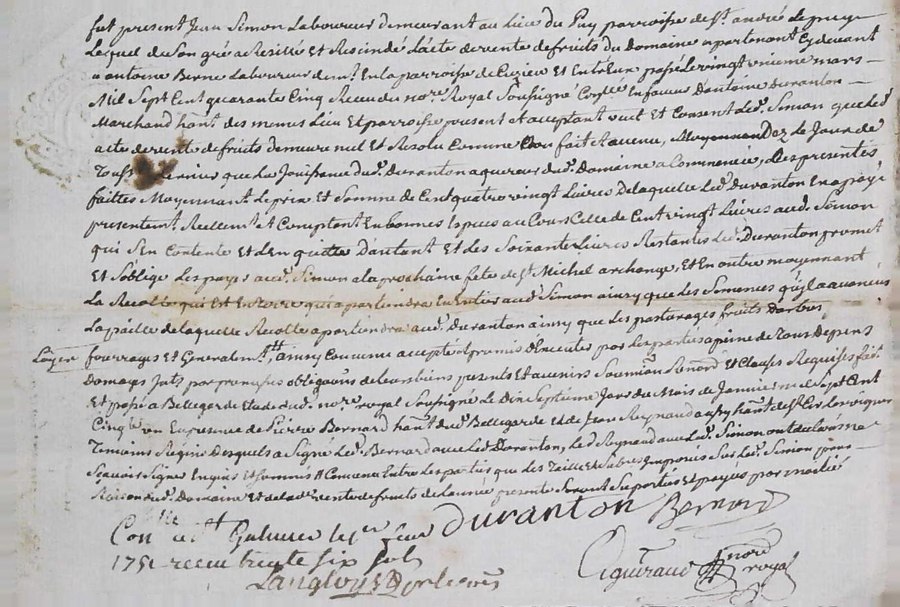 fut present Jean Simon Laboureur demeurant au Lieu du Puy parroisse de st. andré Le puy
Lequel de Son gré a Resillié Et Rescindé L'acte de vente de fruits du Domaine apartenant Cy devant
a antoine Berne Laboureur demt. En la parroisse de Cuzieu Et Entreux passé Le vingt unieme mars
Mil Sept Cent quarante Cinq Receu du nore. Royal Soussigné En faveur D'antoine duranton
Marchand hant. des memes Lieu Et parroisse present Et acceptant veut Et Consent Led. Simon que Led.
acte de vente de fruits demeure nul Et Resolu Comme non fait Et avenu, Moyennant Le Jour de
Touss que La Jouissance dud. duranton aquereur dud. Domaine a Commencé, Les presentes
faittes Moyennant Le prix Et Somme de Cent quatre vingt Livres De laquelle Led. duranton En a payé
presentemt. Reellemt. Et Comptant En bonnes Especes au Cours Celle de Cent vingt Livres aud. Simon
qui S'en Contente Et L'en quitte D'autant Et Les Soixante Livres Restantes Led. Duranton promet
Et S'oblige Les payer aud. Simon a la prochaine fete de st. Michel archange, Et En outre moyennant
La Recolte qui Est En terre qui apartiendra En Entier aud. Simon ainsy que Les Simences qu'il a avancées
La paille de laquelle Recolte apartiendra aud. Duranton ainsy que Les pasturages fruits d'arbres
fourrages Et Generalemt. ainsy Convenu accepté Et promis d'Executer par Les parties a peine de Tous Depens
Domages Jnts. par promesses obligaons. de leurs biens presents Et avenirs Soumions. Renons. Et Clauses Requises fait
Et passé a Bellegarde Etude dud. nore. royal Soussigné Le Dix Septieme Jour du Mois de Janvier mil Sept Cent
Cinqte. un En presence de Pierre Bernard hant. dud. Bellegarde Et de Jean Reynaud aussy hant. de st. Cir Les vignes
Temoins Requis Desquels a Signé Led. Bernard avec Led. Duranton, Led. Reynaud avec Led. Simon ont declaré ne
Scavoir Signer Enquis Et Sommés Convenu Entre Les parties que Les Tailles Et Subsides Imposés Sur Led. Simon pour
Raison dud. Domaine Et de lad. vente de fruits de L'année presente Seront Suportés Et payés par moitié
duranton Bernard
Conllé. Et st. Galmier Le
1751 receu trente six sols
Langlois
Aguiraud nore. royal